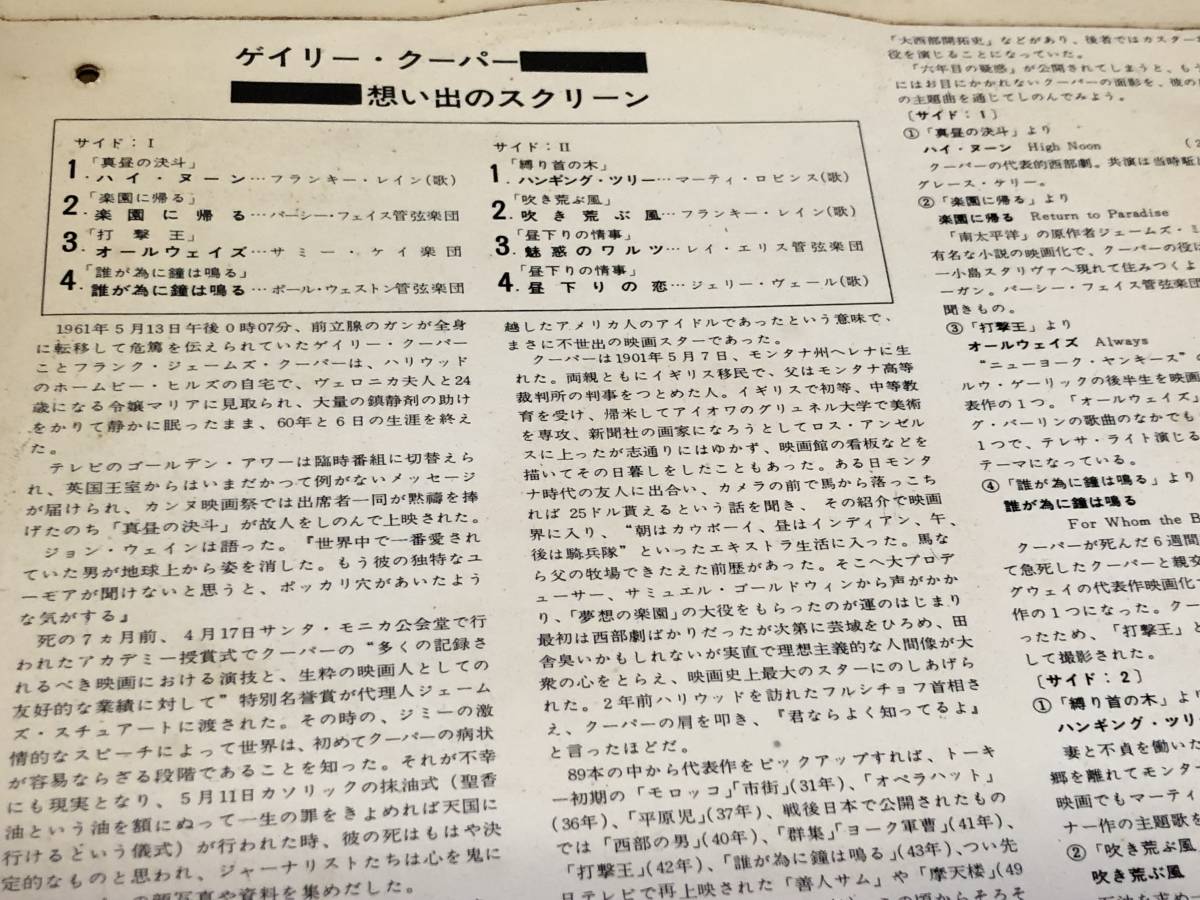 ゲイリー・クーパー
想い出のスクリーン
サイド：I
「真昼の決斗」
1. ハイ・ヌーン…フランキー・レイン(歌)
「楽園に帰る」
2. 楽園に帰る…パーシー・フェイス管弦楽団
「打撃王」
3. オールウェイズ…サミー・ケイ楽団
「誰が為に鐘は鳴る」
4. 誰が為に鐘は鳴る…ポール・ウェストン管弦楽団
サイド：II
「縛り首の木」
1. ハンギング・ツリー…マーティ・ロビンス(歌)
「吹き荒ぶ風」
2. 吹き荒ぶ風…フランキー・レイン(歌)
「昼下りの情事」
3. 魅惑のワルツ…レイ・エリス管弦楽団
「昼下りの情事」
4. 昼下りの恋…ジェリー・ヴェール(歌)
1961年5月13日午後0時07分、前立腺のガンが全身
に転移して危篤を伝えられていたゲイリー・クーパー
ことフランク・ジェームズ・クーパーは、ハリウッド
のホームビー・ヒルズの自宅で、ヴェロニカ夫人と24
歳になる令嬢マリアに見取られ、大量の鎮静剤の助け
をかりて静かに眠ったまま、60年と6日の生涯を終え
た。
テレビのゴールデン・アワーは臨時番組に切替えら
れ、英国王室からはいまだかつて例がないメッセージ
が届けられ、カンヌ映画祭では出席者一同が黙禱を捧
げたのち「真昼の決斗」が故人をしのんで上映された。
ジョン・ウェインは語った。『世界中で一番愛され
ていた男が地球上から姿を消した。もう彼の独特なユ
ーモアが聞けないと思うと、ポッカリ穴があいたよう
な気がする』
死の7カ月前、4月17日サンタ・モニカ公会堂で行
われたアカデミー授賞式でクーパーの“多くの記録さ
れるべき映画における演技と、生粋の映画人としての
友好的な業績に対して”特別名誉賞が代理人ジェーム
ズ・スチュアートに渡された。その時の、ジミーの激
情的なスピーチによって世界は、初めてクーパーの病状
が容易ならざる段階であることを知った。それが不幸
にも現実となり、5月11日カソリックの抹油式(聖香
油という油を額にぬって一生の罪をきよめれば天国に
行けるという儀式)が行われた時、彼の死はもはや決
定的なものと思われ、ジャーナリストたちは心を鬼に
の顔写真や資料を集めだした。
越したアメリカ人のアイドルであったという意味で、
まさに不世出の映画スターであった。
クーパーは1901年5月7日、モンタナ州ヘレナに生
れた。両親ともにイギリス移民で、父はモンタナ高等
裁判所の判事をつとめた人。イギリスで初等、中等教
育を受け、帰米してアイオワのグリュネル大学で美術
を専攻、新聞社の画家になろうとしてロス・アンゼル
スに上ったが志通りにはゆかず、映画館の看板などを
描いてその日暮しをしたこともあった。ある日モンタ
ナ時代の友人に出合い、カメラの前で馬から落っこち
れば25ドル貰えるという話を聞き、その紹介で映画
界に入り、“朝はカウボーイ、昼はインディアン、午、
後は騎兵隊”といったエキストラ生活に入った。馬な
ら父の牧場できたえた前歴があった。そこへ大プロデ
ューサー、サミュエル・ゴールドウィンから声がかか
り、「夢想の楽園」の大役をもらったのが運のはじまり
最初は西部劇ばかりだったが次第に芸域をひろめ、田
舎臭いかもしれないが実直で理想主義的な人間像が大
衆の心をとらえ、映画史上最大のスターにのしあげら
れた。2年前ハリウッドを訪れたフルシチョフ首相さ
え、クーパーの肩を叩き、『君ならよく知ってるよ』
と言ったほどだ。
89本の中から代表作をピックアップすれば、トーキ
ー初期の「モロッコ」「市街」(31年)、「オペラハット」
(36年)、「平原児」(37年)、戦後日本で公開されたもの
では「西部の男」(40年)、「群集」「ヨーク軍曹」(41年)、
「打撃王」(42年)、「誰が為に鐘は鳴る」(43年)、つい先
日テレビで再上映された「善人サム」や「摩天楼」(49
「大西部開拓史」などがあり、後者ではカスター
役を演じることになっていた。
「六年目の疑惑」が公開されてしまうと、もう
にはお目にかかれないクーパーの面影を、彼の
の主題曲を通じてしのんでみよう。
〔サイド：1〕
①「真昼の決斗」より
ハイ・ヌーン High Noon (2
クーパーの代表的西部劇。共演は当時駈出
グレース・ケリー。
②「楽園に帰る」より
楽園に帰る Return to Paradise
「南太平洋」の原作者ジェームズ・ミ
有名な小説の映画化で、クーパーの役は
一小島スタリヴァへ現れて住みつくよ
ーガン。パーシー・フェイス管弦楽団
聞きもの。
③「打撃王」より
オールウェイズ Always
“ニューヨーク・ヤンキース”の
ルウ・ゲーリックの後半生を映画
表作の1つ。「オールウェイズ」
グ・バーリンの歌曲のなかでも
1つで、テレサ・ライト演じる
テーマになっている。
④「誰が為に鐘は鳴る」より
誰が為に鐘は鳴る
For Whom the B
クーパーが死んだ6週間
て急死したクーパーと親交
グウェイの代表作映画化
作の1つになった。クー
ったため、「打撃王」と
して撮影された。
〔サイド：2〕
①「縛り首の木」よ
ハンギング・ツリ
妻と不貞を働いた
郷を離れてモンタ
映画でもマーティ
ナー作の主題歌を
②「吹き荒ぶ風」
吹き荒ぶ風